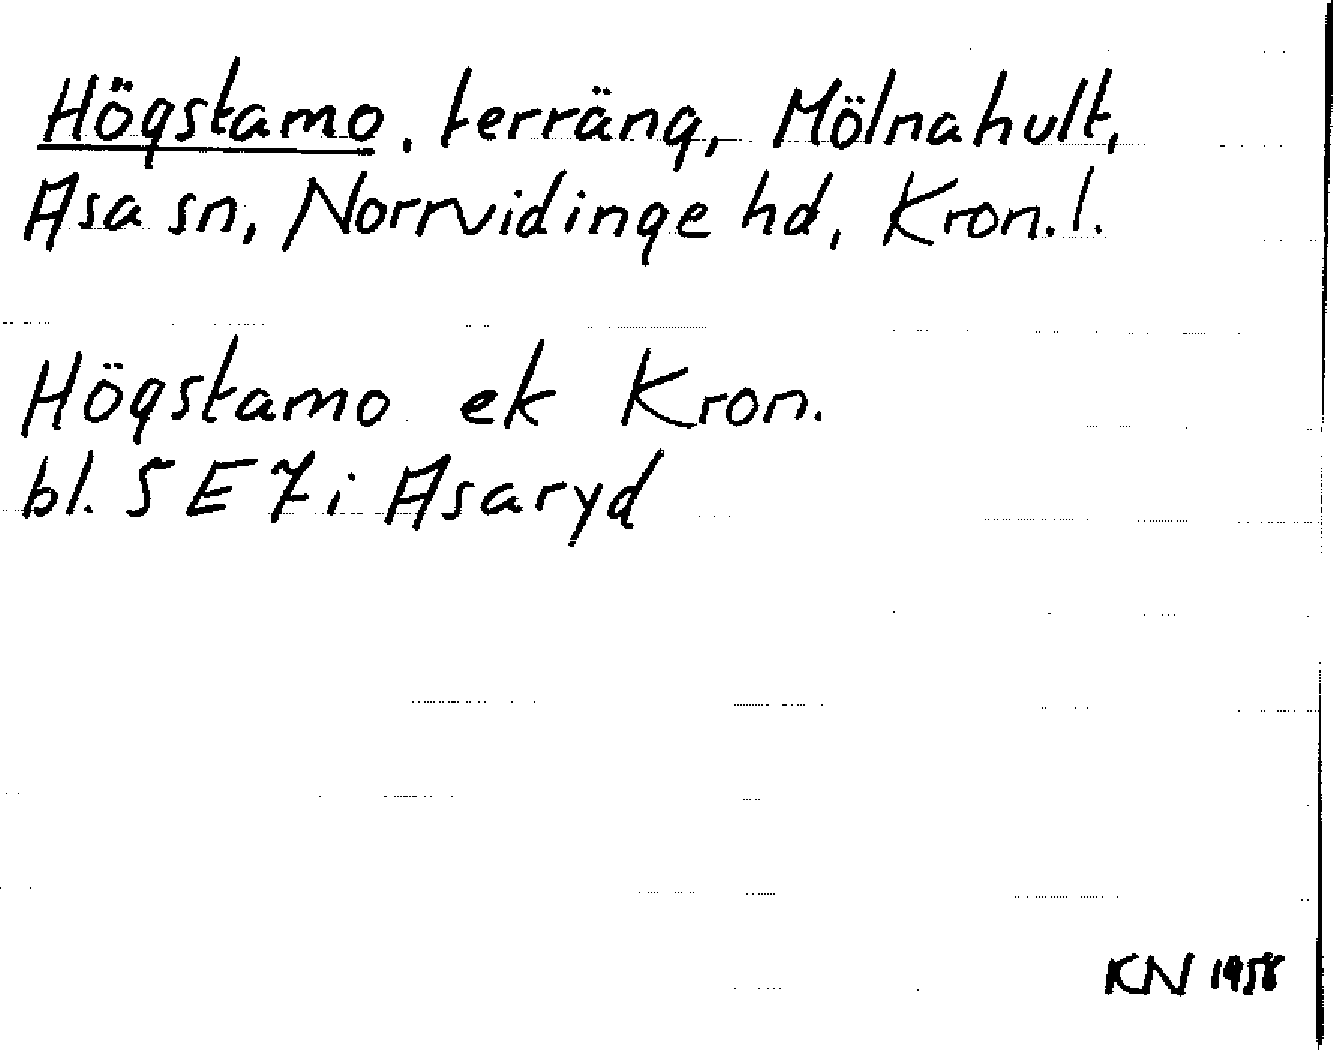 Högstamo, terräng, Mölnahult,
Asa sn, Norrvidinge hd, Kron.l.
Högstamo ek Kron.
bl. 5 E 7 i Asaryd
KN 1958